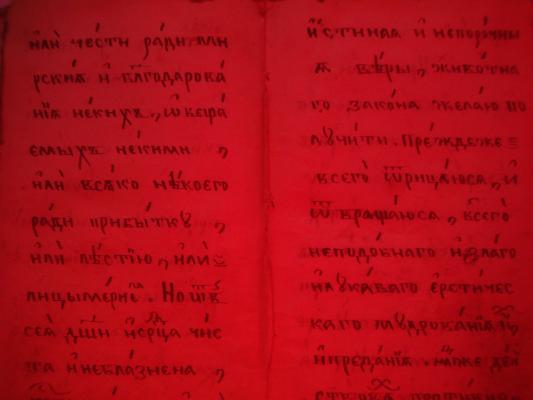 и҆лѝ че́сти ра́ди ми
рскиѧ и҆ бл҃годарова́
нїѧ не́кихъ, ѿвеща́
емыхъ не́кими ,
и҆лѝ всѧ́ко нѣ́коего
ра́ди прибы́ткꙋ ,
и҆лѝ лѣ́стїю , и҆лѝ
лицыме́рне . Но ѿ всеѧ̀
дш҃и и҆ се́рдца чи́с
та и҆ неблазнена ,
и҆́стиннаѧ и҆ непоро́чны
ѧ вѣ́ры , живо́тна
го зако́на жела́ю по
лꙋчи́ти . Пре́ждеже
всего̀ ѿрица́юсѧ , и҆
ѿвраща́юсѧ , всего̀
неподо́бнаго и҆ ѕла́го
и҆ лꙋка́ваго є҆рети́чес
каго мꙋдрова́нїѧ ,
и҆ преда́нїѧ .